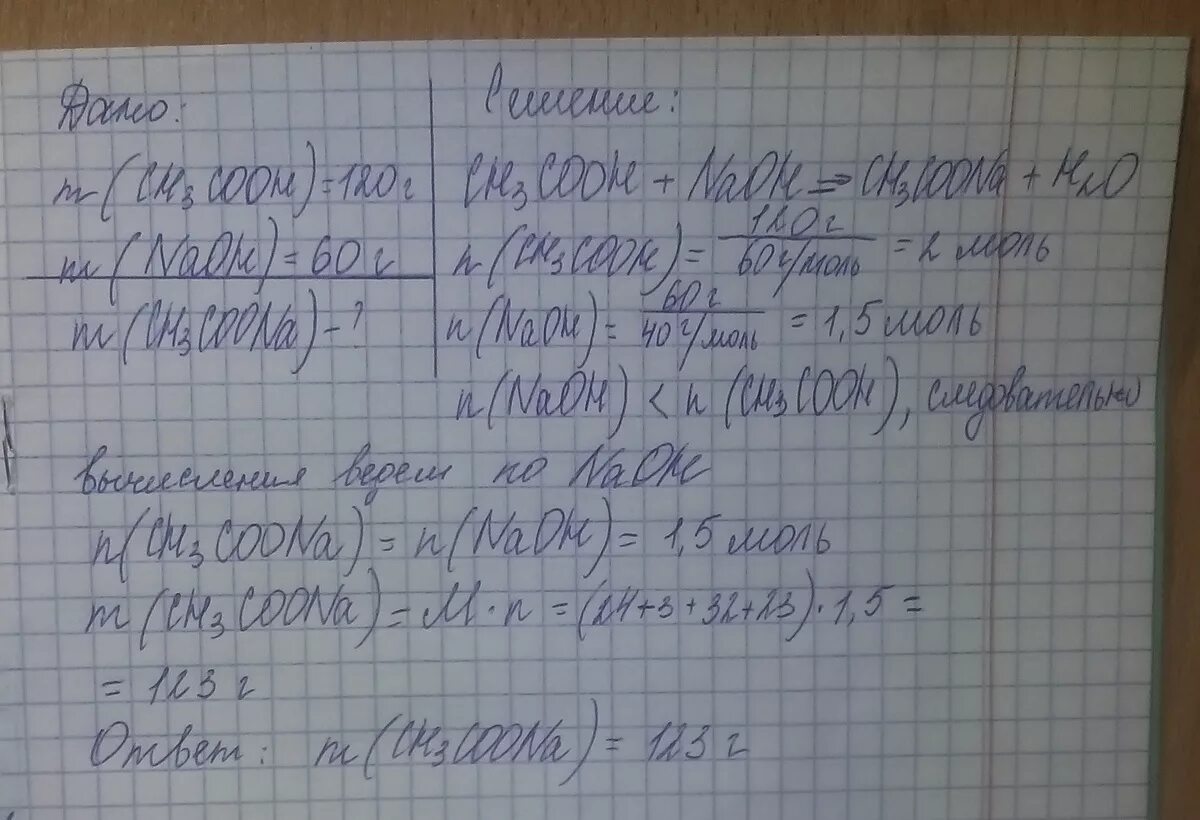 Дано:
m(CH₃COOH)=120г
m(NaOH)=60г
m(CH₃COONa)-?
Решение:
CH₃COOH + NaOH ⇒ CH₃COONa + H₂O
n(CH₃COOH)= 120г / 60г/моль = 2 моль
n(NaOH)= 60г / 40г/моль = 1,5 моль
n(NaOH) < n(CH₃COOH), следовательно
вычисления ведем по NaOH
n(CH₃COONa)= n(NaOH)= 1,5 моль
m(CH₃COONa)= M·n = (24+3+32+23)·1,5 =
= 123 г
Ответ: m(CH₃COONa)= 123 г